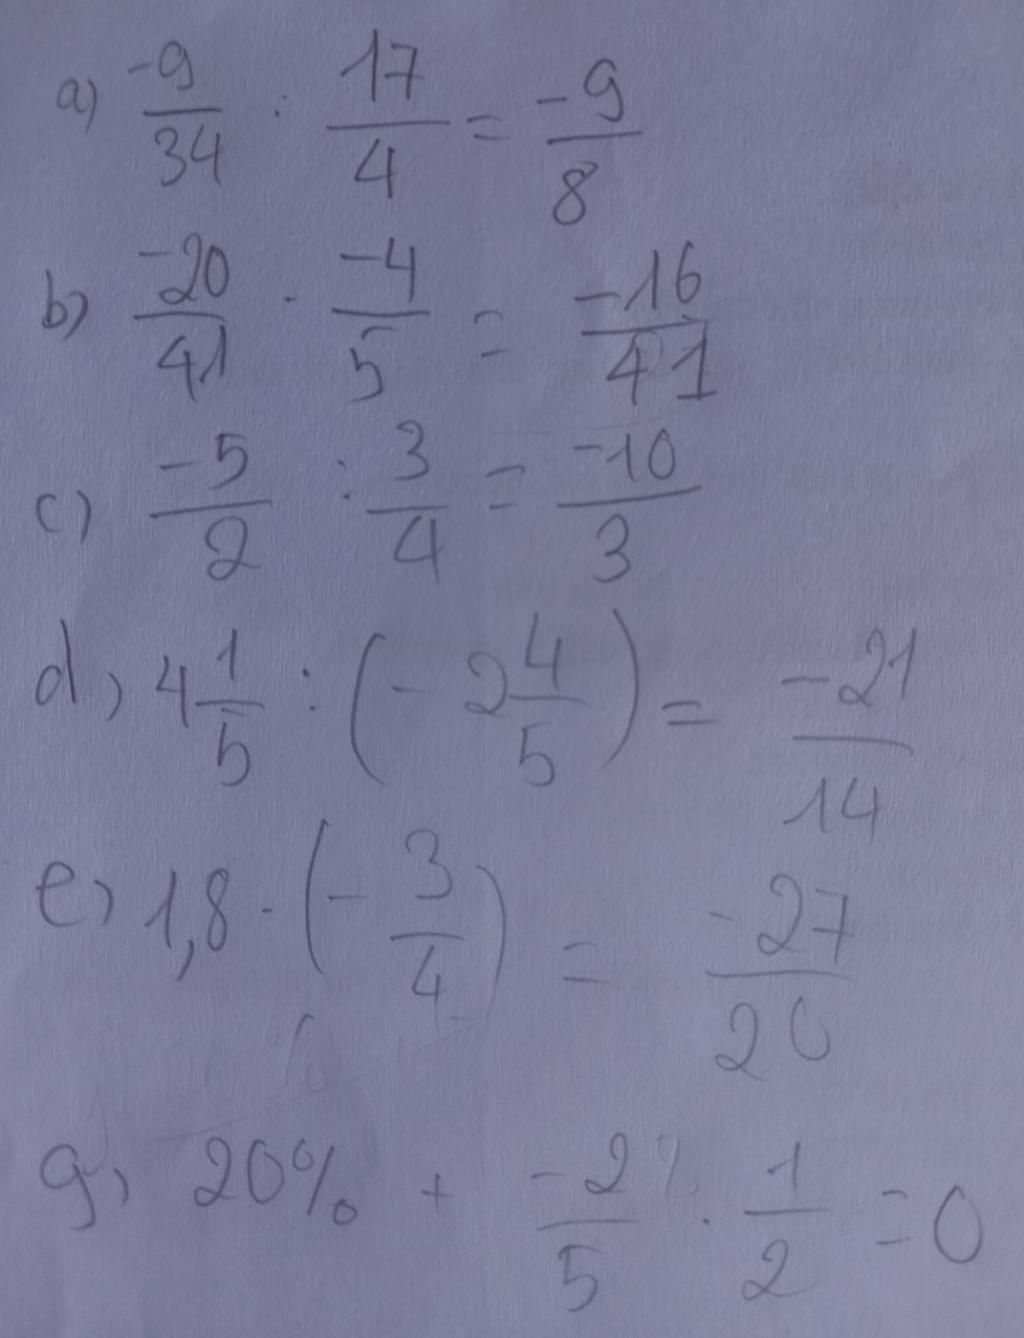 a) -9/34 . 17/4 = -9/8
b) -20/41 . -4/5 = -16/41
c) -5/2 : 3/4 = -10/3
d) 4 1/5 : (- 2 4/5) = -21/14
e) 1,8 . (- 3/4) = -27/20
g) 20% + -2/5 . 1/2 = 0